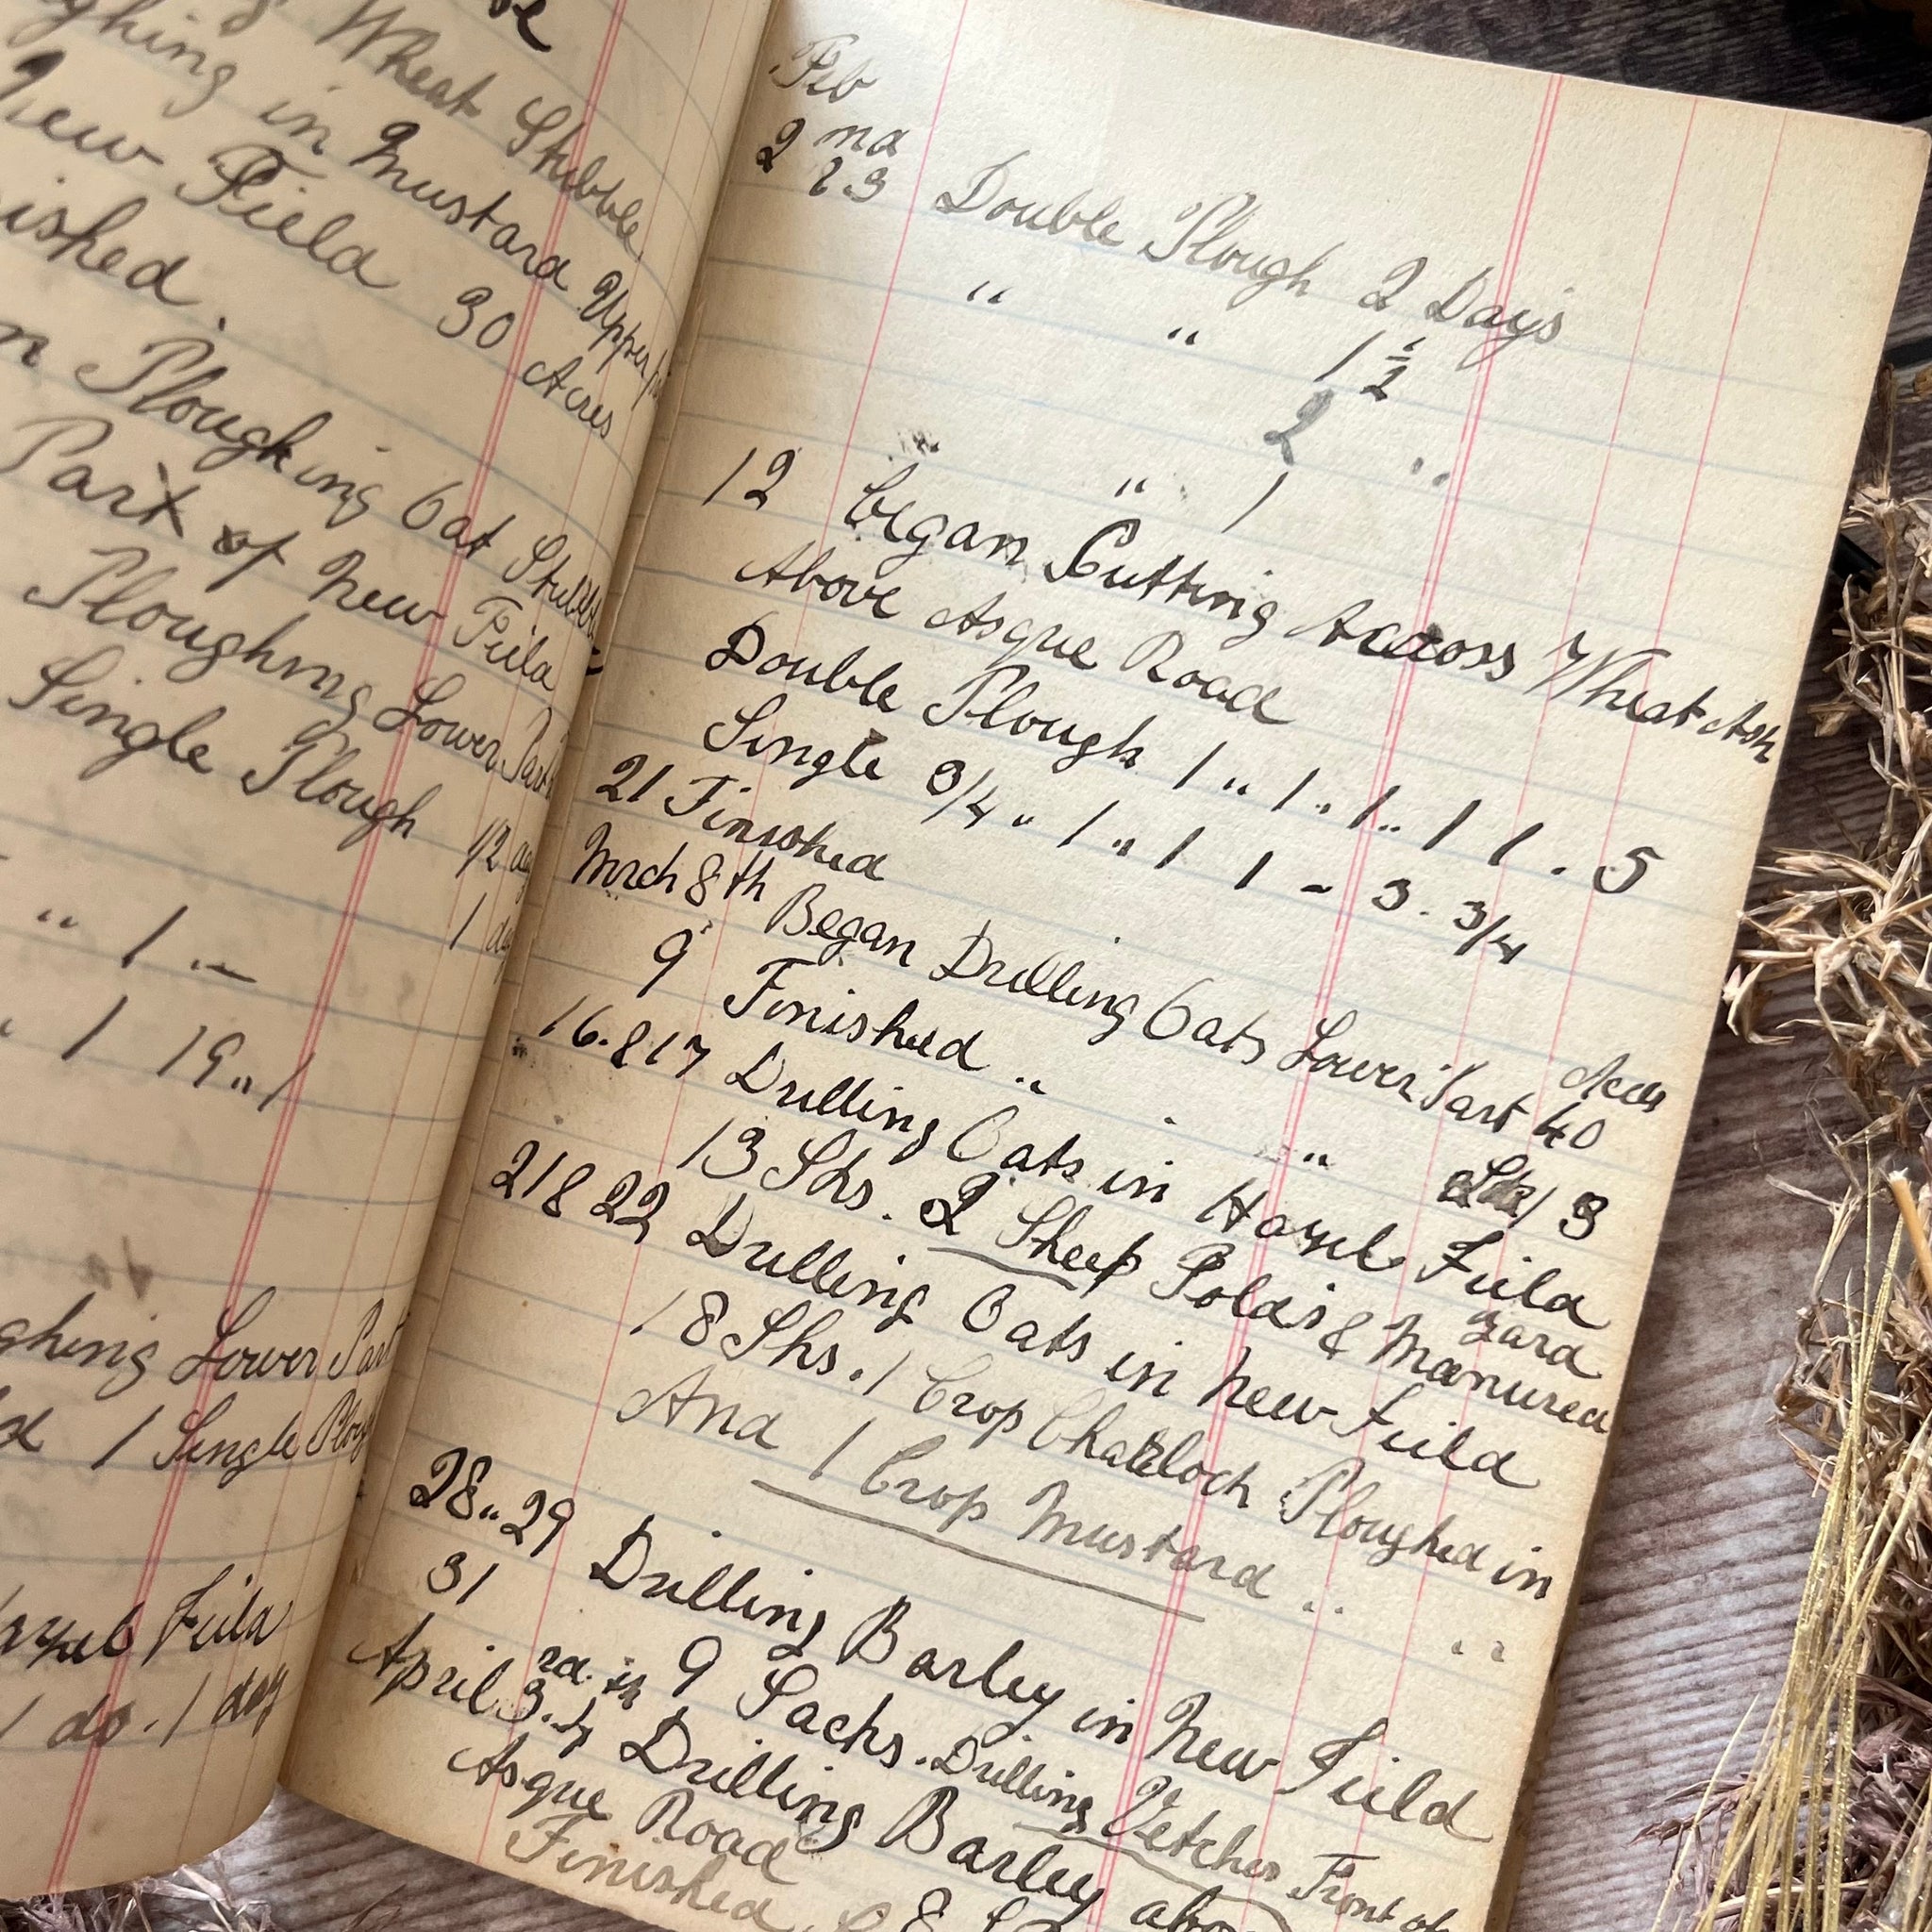 Wheat Stubble
ghing in Mustard Upper
New Field 30 Acres
ished.
n Ploughing Oat Stubble
Part of New Field
Ploughing Lower Part
Single Plough 1/2 day
1 day
" 1 "
" 1 19 " 1
ghing Lower Part
d 1 Single Plough
azel Field
1 do. 1 day
Feb
2nd
& 3 Double Plough 2 Days
" " 1 1/2
2 "
" 1
12 Began Cutting Across Wheat
Above Asque Road
Double Plough 1 " 1 " 1 " 1 1 . 5
Single 3/4 " 1 " 1 1 - 3 . 3/4
21 Finished
Mrch 8th Began Drilling Oats Lower Part 40 Acres
9 Finished " " 3
16 . & 17 Drilling Oats in Hazel Field
13 Shs. 2 Sheep Folds & Yard Manured
21 & 22 Drilling Oats in New Field
18 Shs. 1 Crop Charloch Ploughed in
And 1 Crop Mustard " "
28 " 29 Drilling Barley in New Field
31 9 Sachs. Drilling Vetches Front of
April 3rd. 4th Drilling Barley abo
Asque Road
Finished